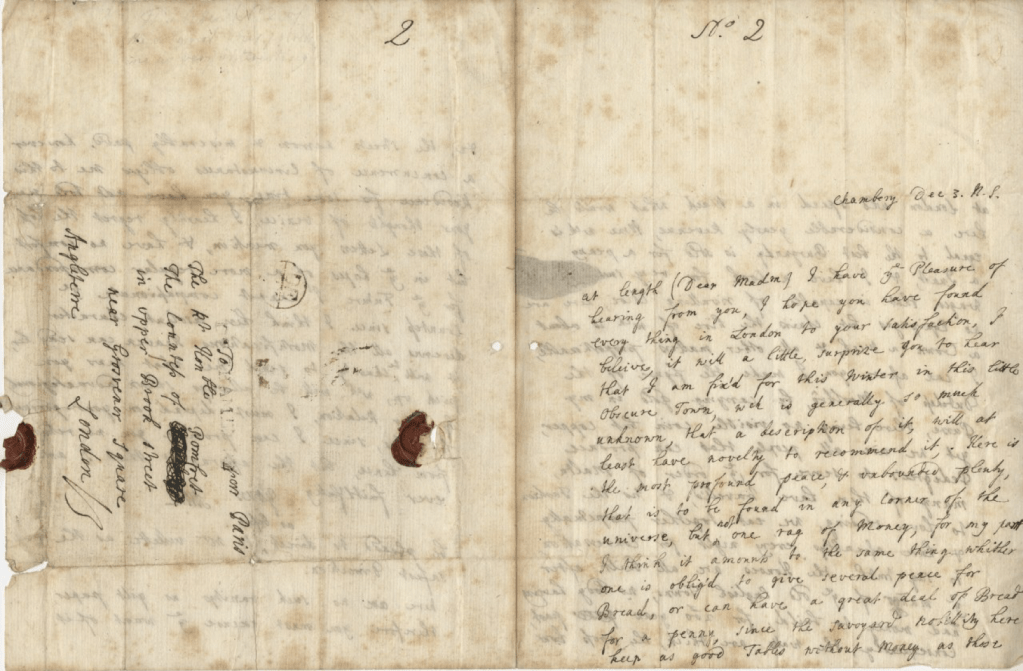 2
To
The Rt. Honble
The Countess of Pomfret
in upper Brook street
near Grosvenor Square
London
Angleterre
Paris
No. 2
Chambery Dec 3. N.S.
at length (Dear Madm) I have ye Pleasure of
hearing from you, I hope you have found
every thing in London to your satisfaction, I
beleive it will a little surprize you to hear
that I am fix'd for this Winter in this little
Obscure Town, wch is generally so much
unknown, that a description of it will at
least have novelty to recommend it. Here is
the most profound peace & unbounded plenty,
that is to be found in any Corner of the
universe, but not one rag of Money, for my part
I think it amounts to the same thing whither
one is oblig'd to give several peace for
Bread, or can have a great deal of Bread
for a penny, since the Savoyard nobillity here
keep as good Tables without Money as those